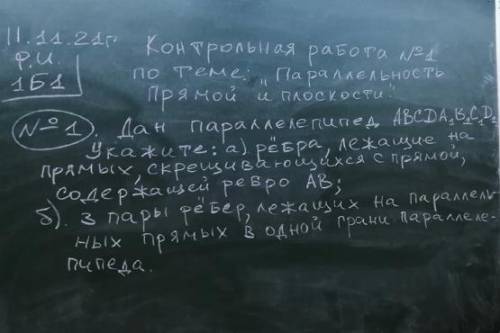 11.11.21г.
Ф.И.
1Б1
Контрольная работа №1
по теме: "Параллельность
прямой и плоскости".
№1. Дан параллелепипед ABCDA₁B₁C₁D₁
Укажите: а) рёбра, лежащие на
прямых, скрещивающихся с прямой,
содержащей ребро AB;
б). 3 пары рёбер, лежащих на параллель-
ных прямых в одной грани параллеле-
пипеда.